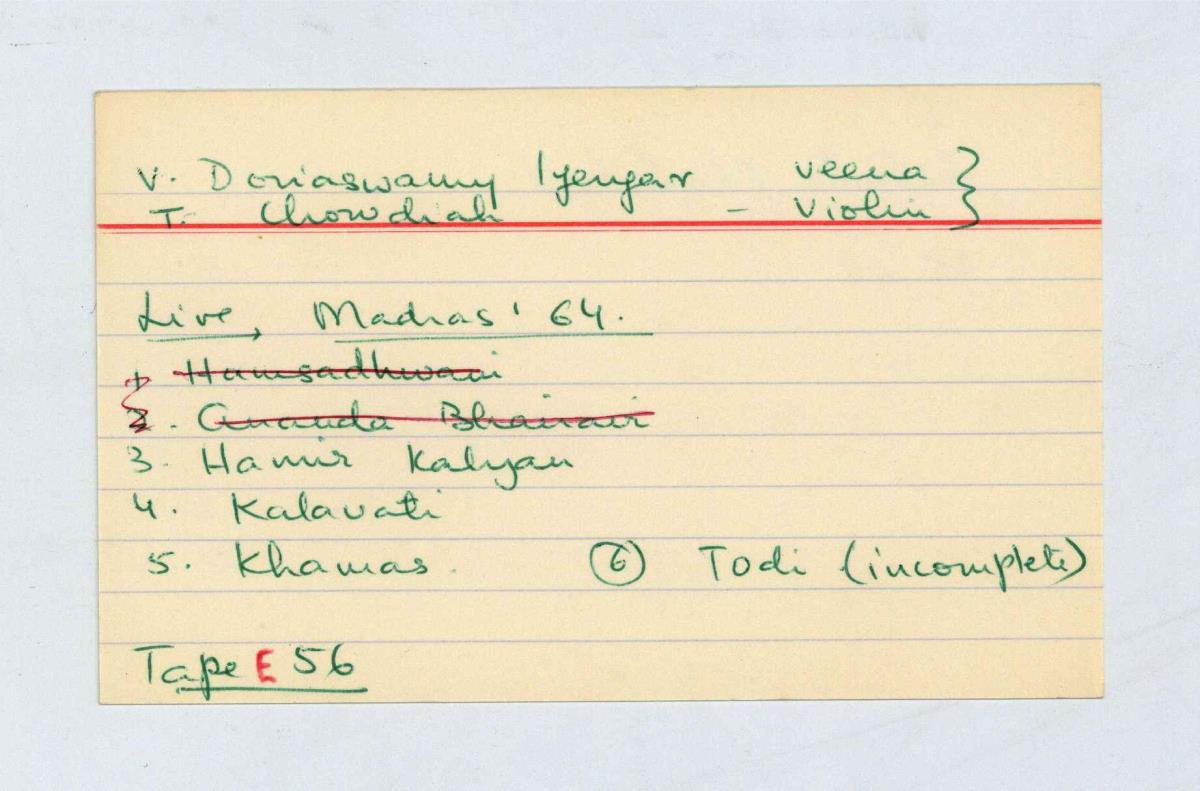 V. Doriaswamy Iyengar veena }
T. Chowdiah - Violin }
Live, Madras '64.
1 Hamsadhwani
2. Ananda Bhairavi
3. Hamir Kalyan
4. Kalavati
5. Khamas. ⑥ Todi (incomplete)
Tape E 56